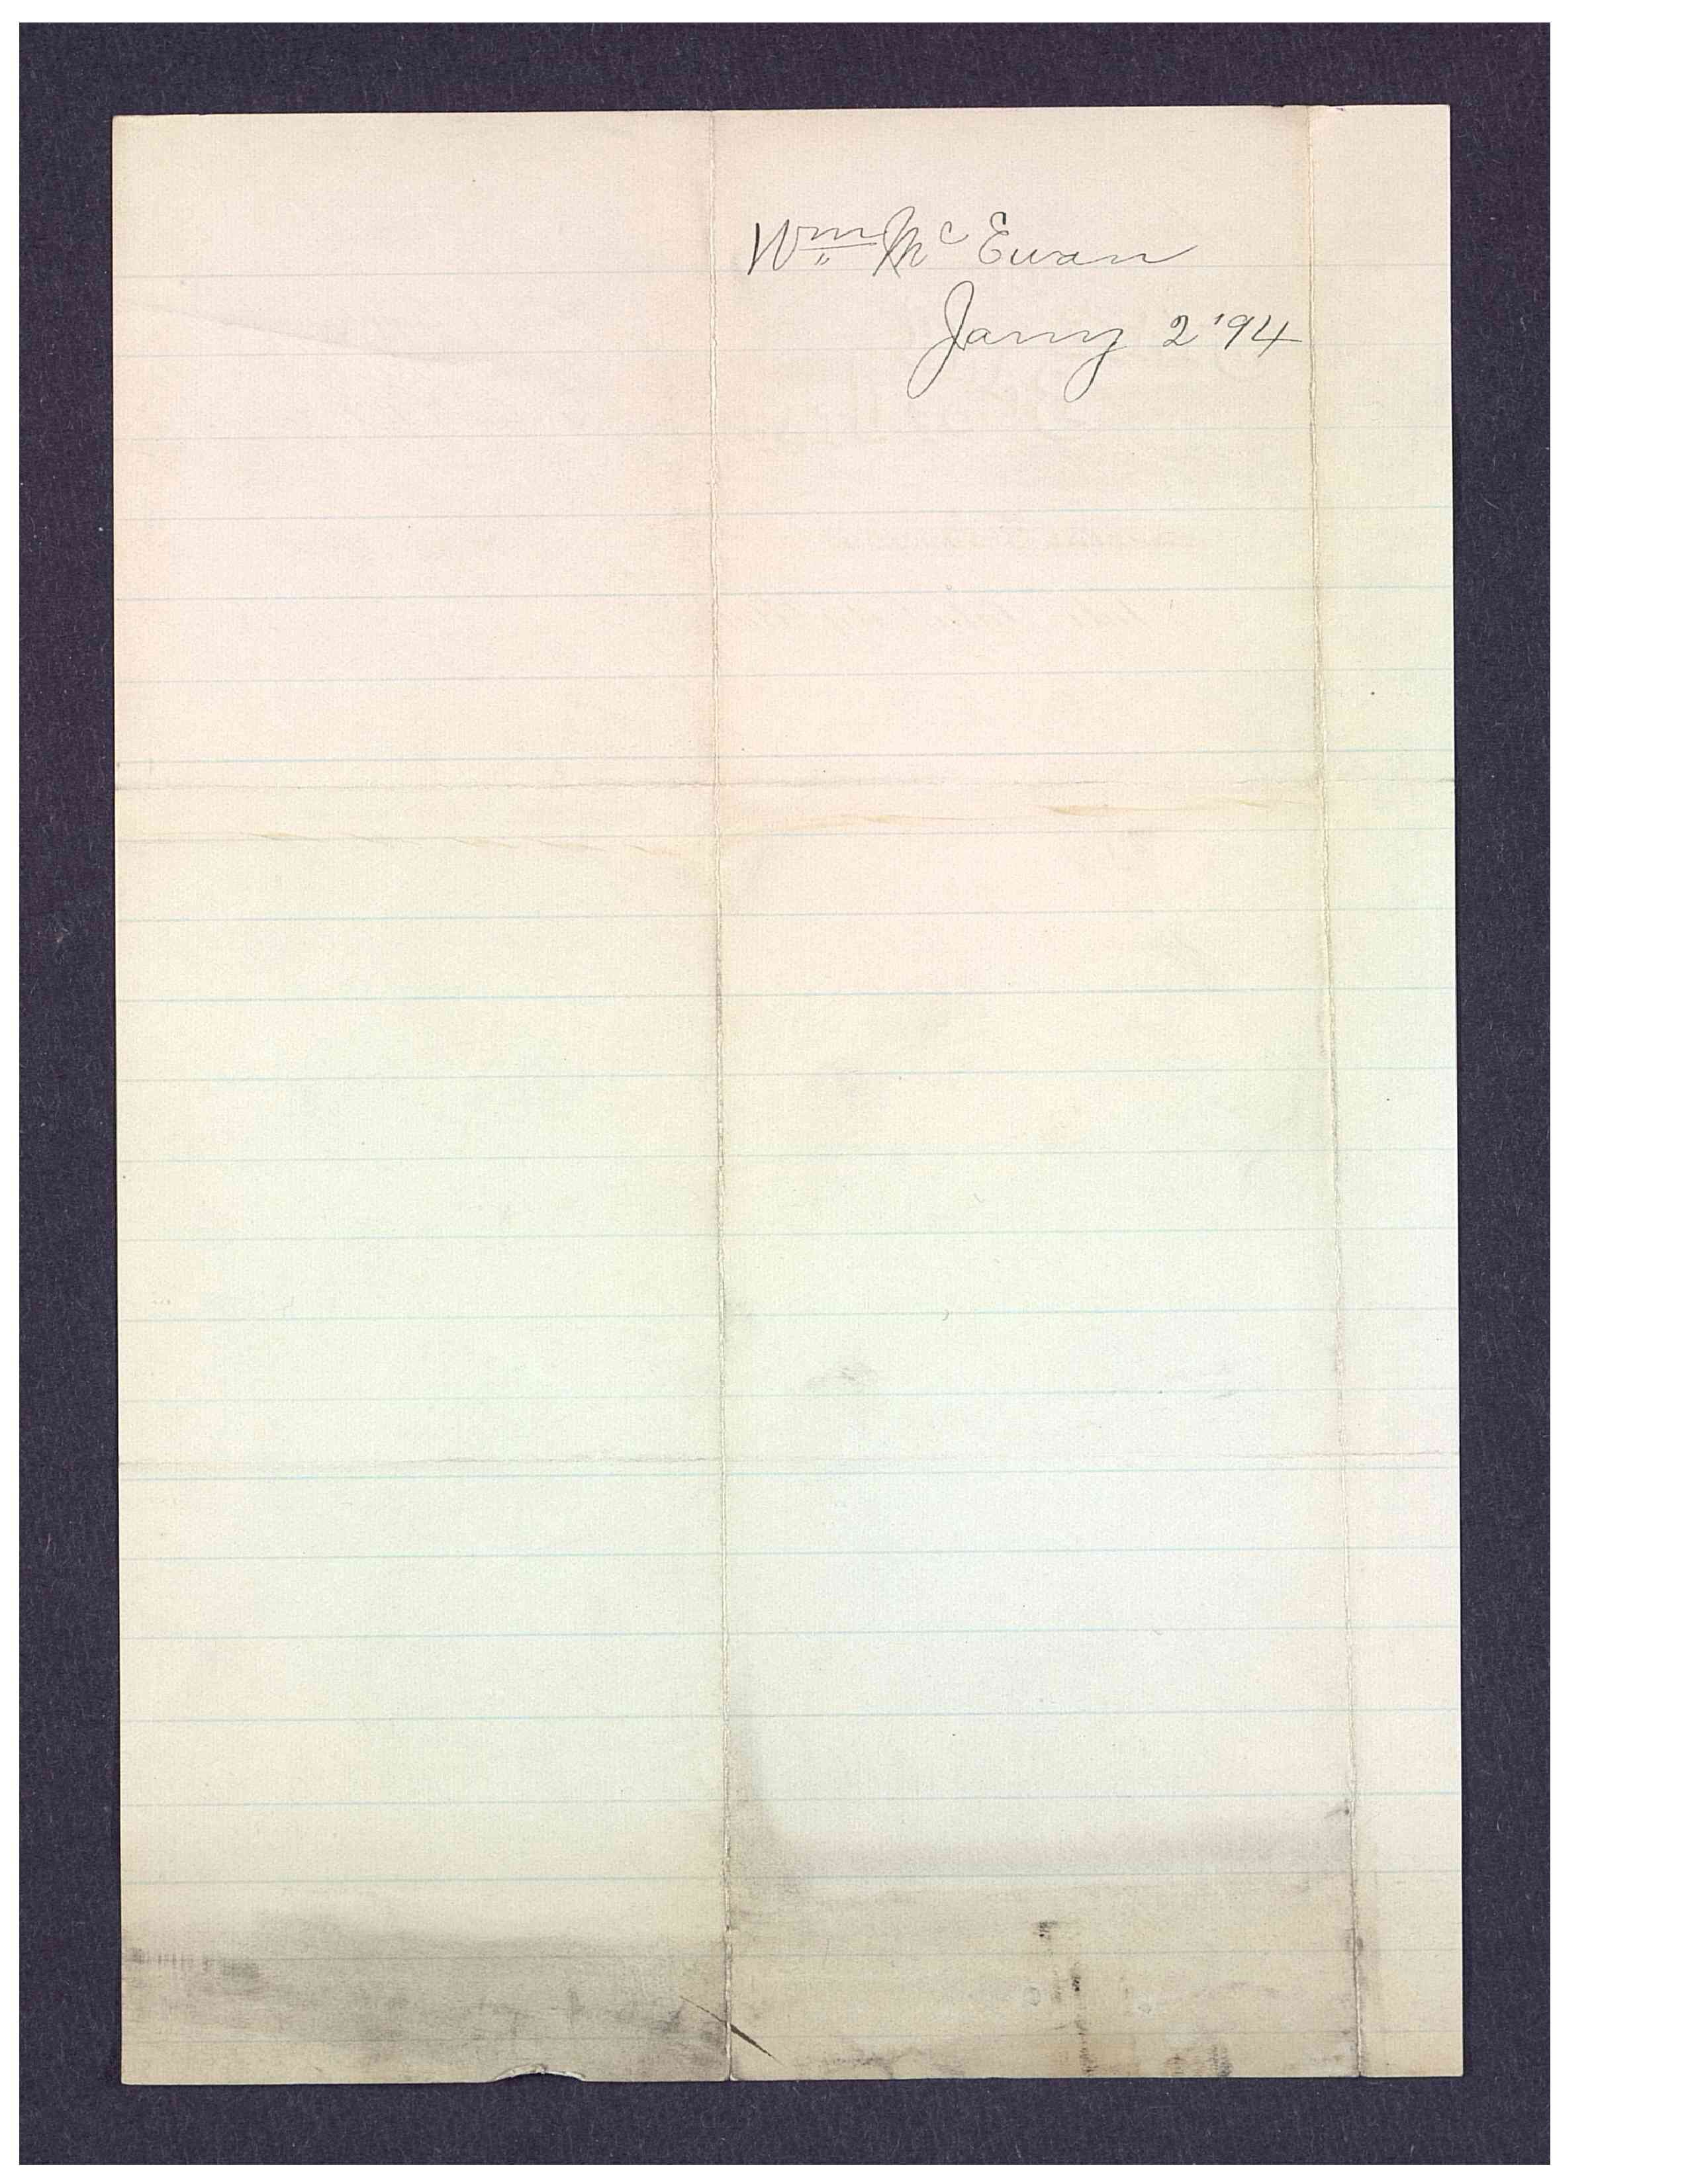 Wm McEwan
Jany 2 '94